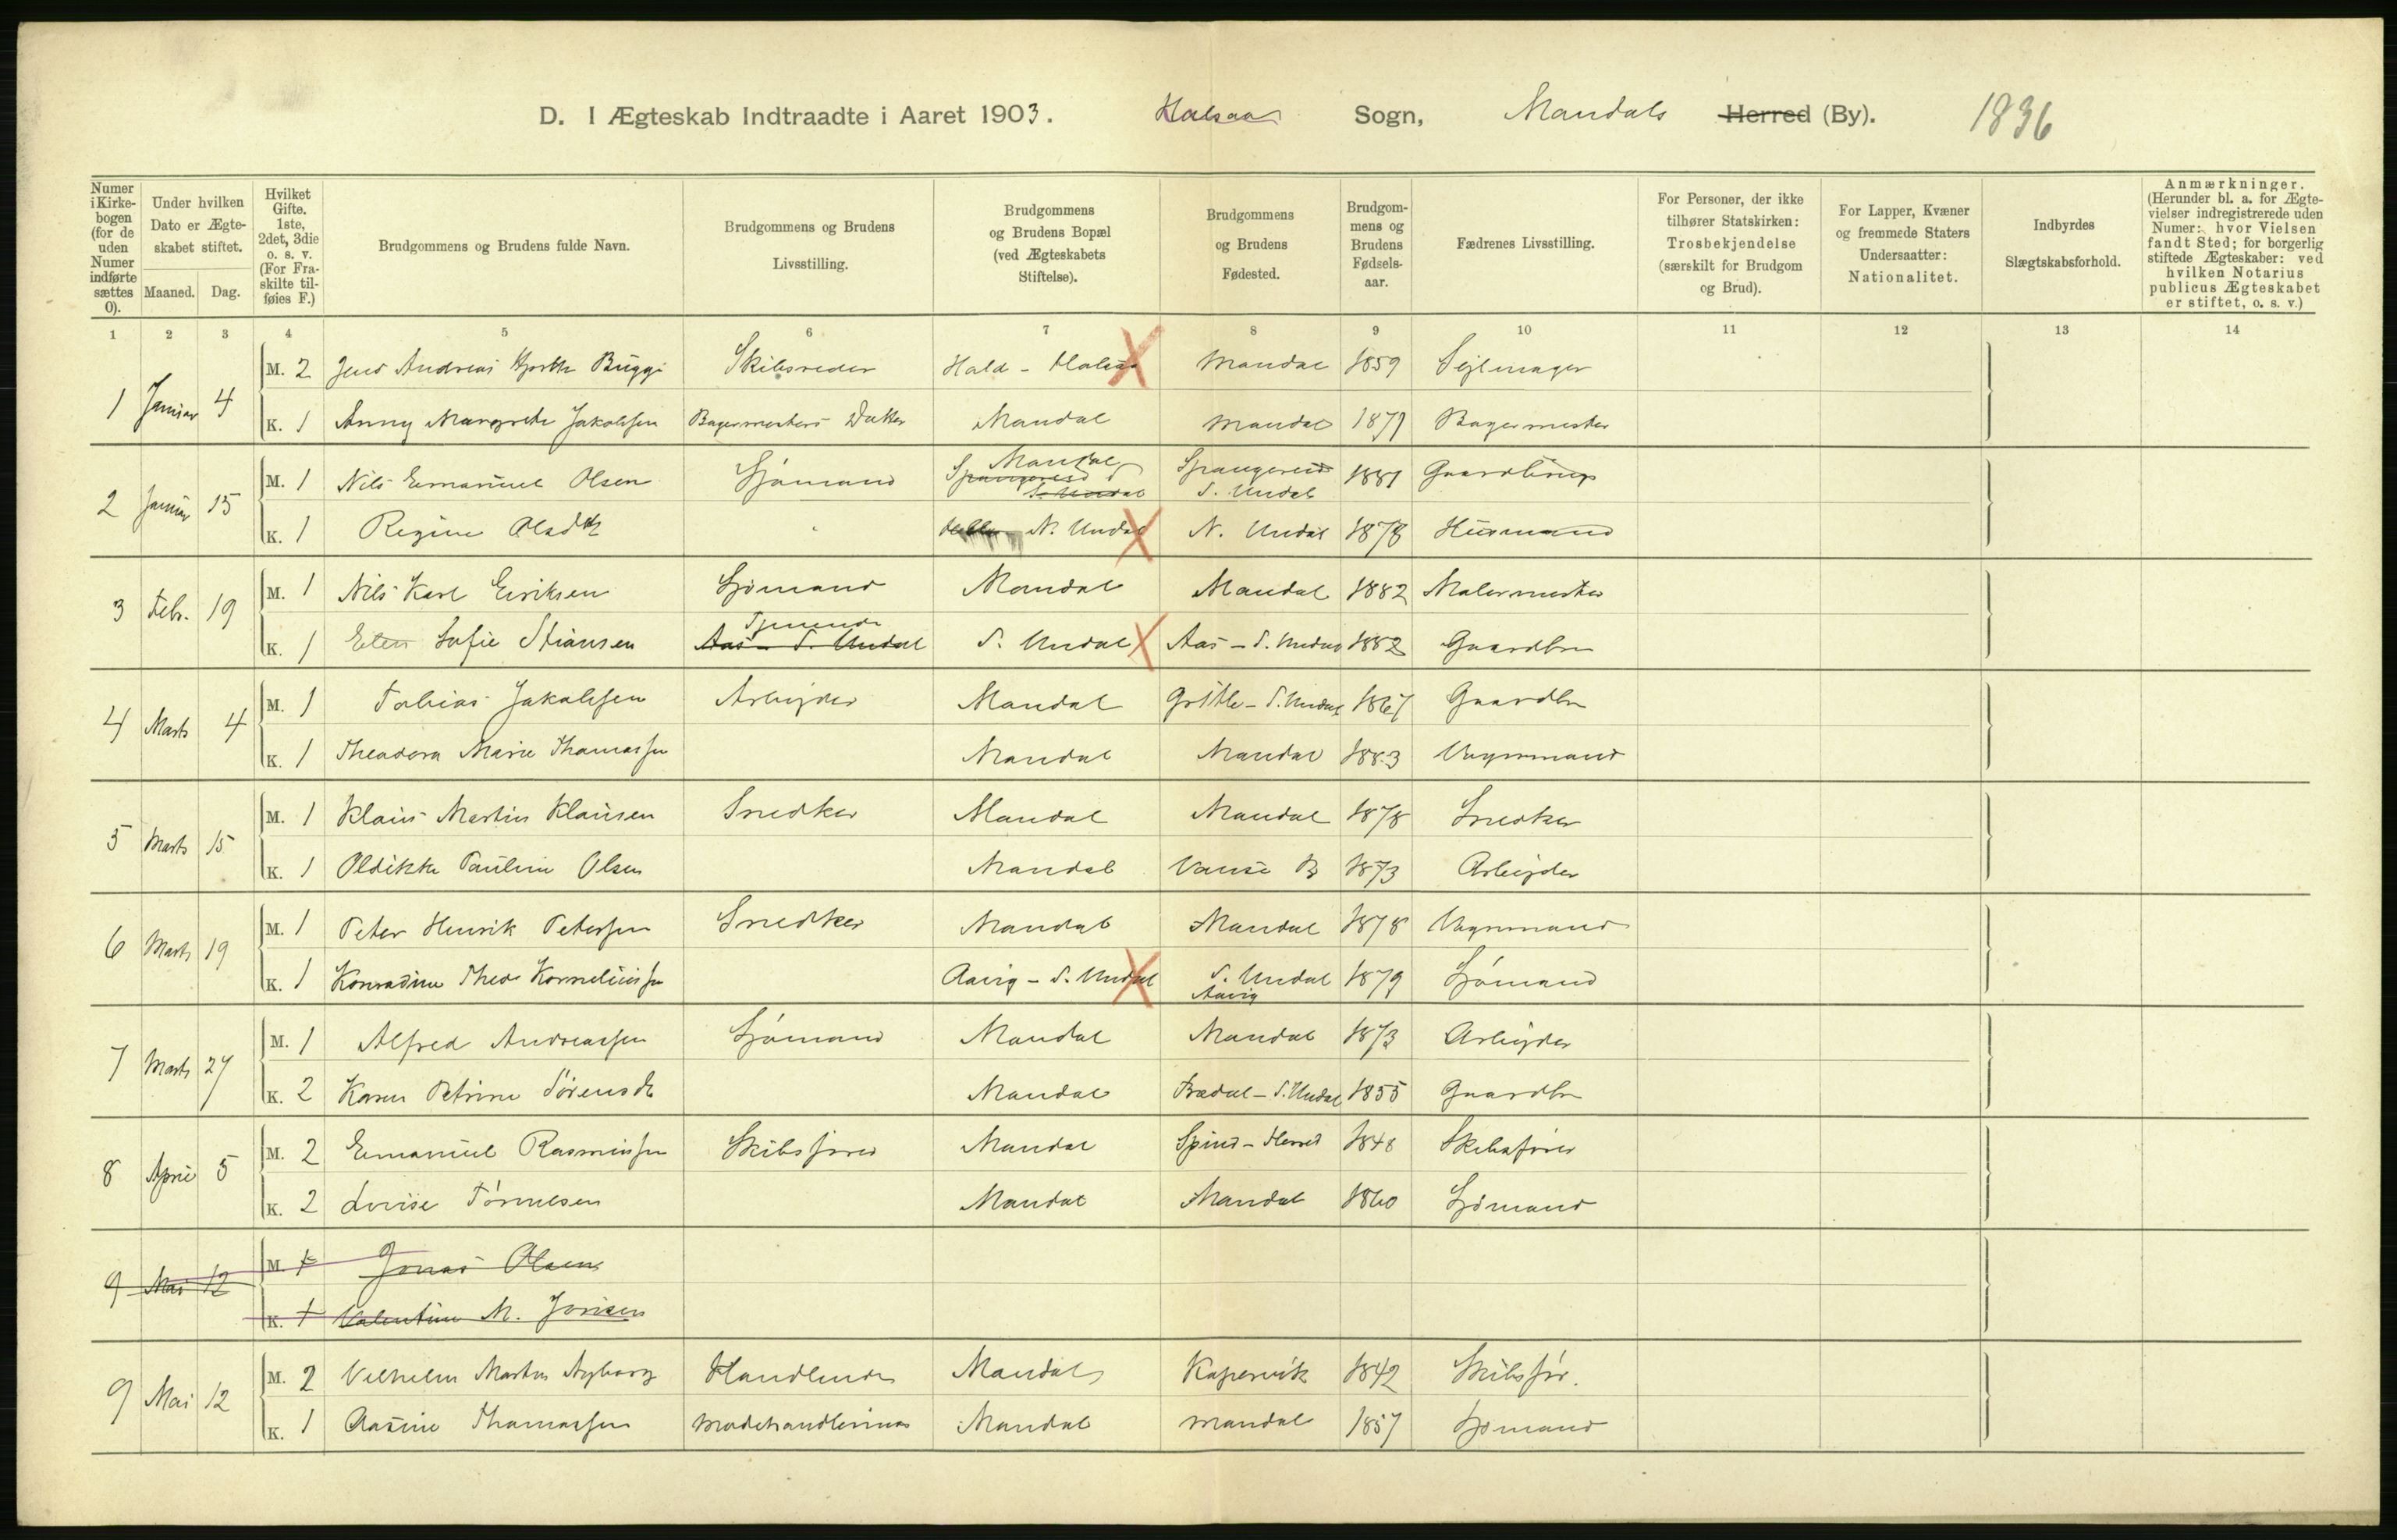 D. I Ægteskab Indtraadte i Aaret 1903. Halsaa Sogn, Mandals Herred (By). 1836
Numer i Kirkebogen (for de uden Numer indførte sættes 0).
Under hvilken Dato er Ægteskabet stiftet.
Maaned. Dag.
Hvilket Gifte. 1ste, 2det, 3die o. s. v. (For Fraskilte tilføies F.)
Brudgommens og Brudens fulde Navn.
Brudgommens og Brudens Livsstilling.
Brudgommens og Brudens Bopæl (ved Ægteskabets Stiftelse).
Brudgommens og Brudens Fødested.
Brudgommens og Brudens Fødselsaar.
Fædrenes Livsstilling.
For Personer, der ikke tilhører Statskirken: Trosbekjendelse (særskilt for Brudgom og Brud).
For Lapper, Kvæner og fremmede Staters Undersaatter: Nationalitet.
Indbyrdes Slægtskabsforhold.
Anmærkninger. (Herunder bl. a. for Ægtevielser indregistrerede uden Numer: hvor Vielsen fandt Sted; for borgerlig stiftede Ægteskaber: ved hvilken Notarius publicus Ægteskabet er stiftet, o. s. v.)
1 2 3 4 5 6 7 8 9 10 11 12 13 14
1 Januar 4
M. 2 Jens Andreas Bugge Skibsreder Hald - Halsaa Mandal 1859 Sejlmager
K. 1 Anny Margrete Jakobsen Bagermesters Datter Mandal Mandal 1877 Bagermester
2 Januar 15
M. 1 Nils Emanuel Olsen Sjømand Mandal Spangereid S. Undal Spangereid S. Undal 1881 Gaardbrug
K. 1 Regine Olsdtr N. Undal N. Undal 1878 Husmand
3 Febr. 19
M. 1 Nils Karl Eriksen Sjømand Mandal Mandal 1882 Malermester
K. 1 Elen Sofie Stiansen Tjenende Aas - S. Undal S. Undal Aas - S. Undal 1882 Gaardbr
4 Marts 4
M. 1 Tobias Jakobsen Arbejder Mandal S. Undal 1867 Gaardbr
K. 1 Theodora Marie Thomassen Mandal Mandal 1883 Vognmand
5 Marts 15
M. 1 Klaus Martin Klausen Snedker Mandal Mandal 1878 Snedker
K. 1 Oldikke Pauline Olsen Mandal Vanse 1873 Arbejder
6 Marts 19
M. 1 Peter Henrik Petersen Snedker Mandal Mandal 1878 Vognmand
K. 1 Konradine Thea Korneliussen Aavig - S. Undal S. Undal Aavig 1879 Sjømand
7 Marts 27
M. 1 Alfred Andreassen Sjømand Mandal Mandal 1873 Arbejder
K. 2 Karen Petrine Sørensdtr Mandal S. Undal 1855 Gaardbr
8 April 5
M. 2 Emanuel Rasmussen Skibsfører Mandal Spind - Herred 1848 Skibsfører
K. 2 Lovise Tønnesen Mandal Mandal 1860 Sjømand
9 Mai 12
M. 1 Jonas Olsen
K. 1 Valentine M. Jonsen
9 Mai 12
M. 2 Vilhelm Martin Nyborg Handlende Mandal Kopervik 1842 Skibsfør.
K. 1 Aasine Thomassen Modehandlerinde Mandal Mandal 1857 Sjømand